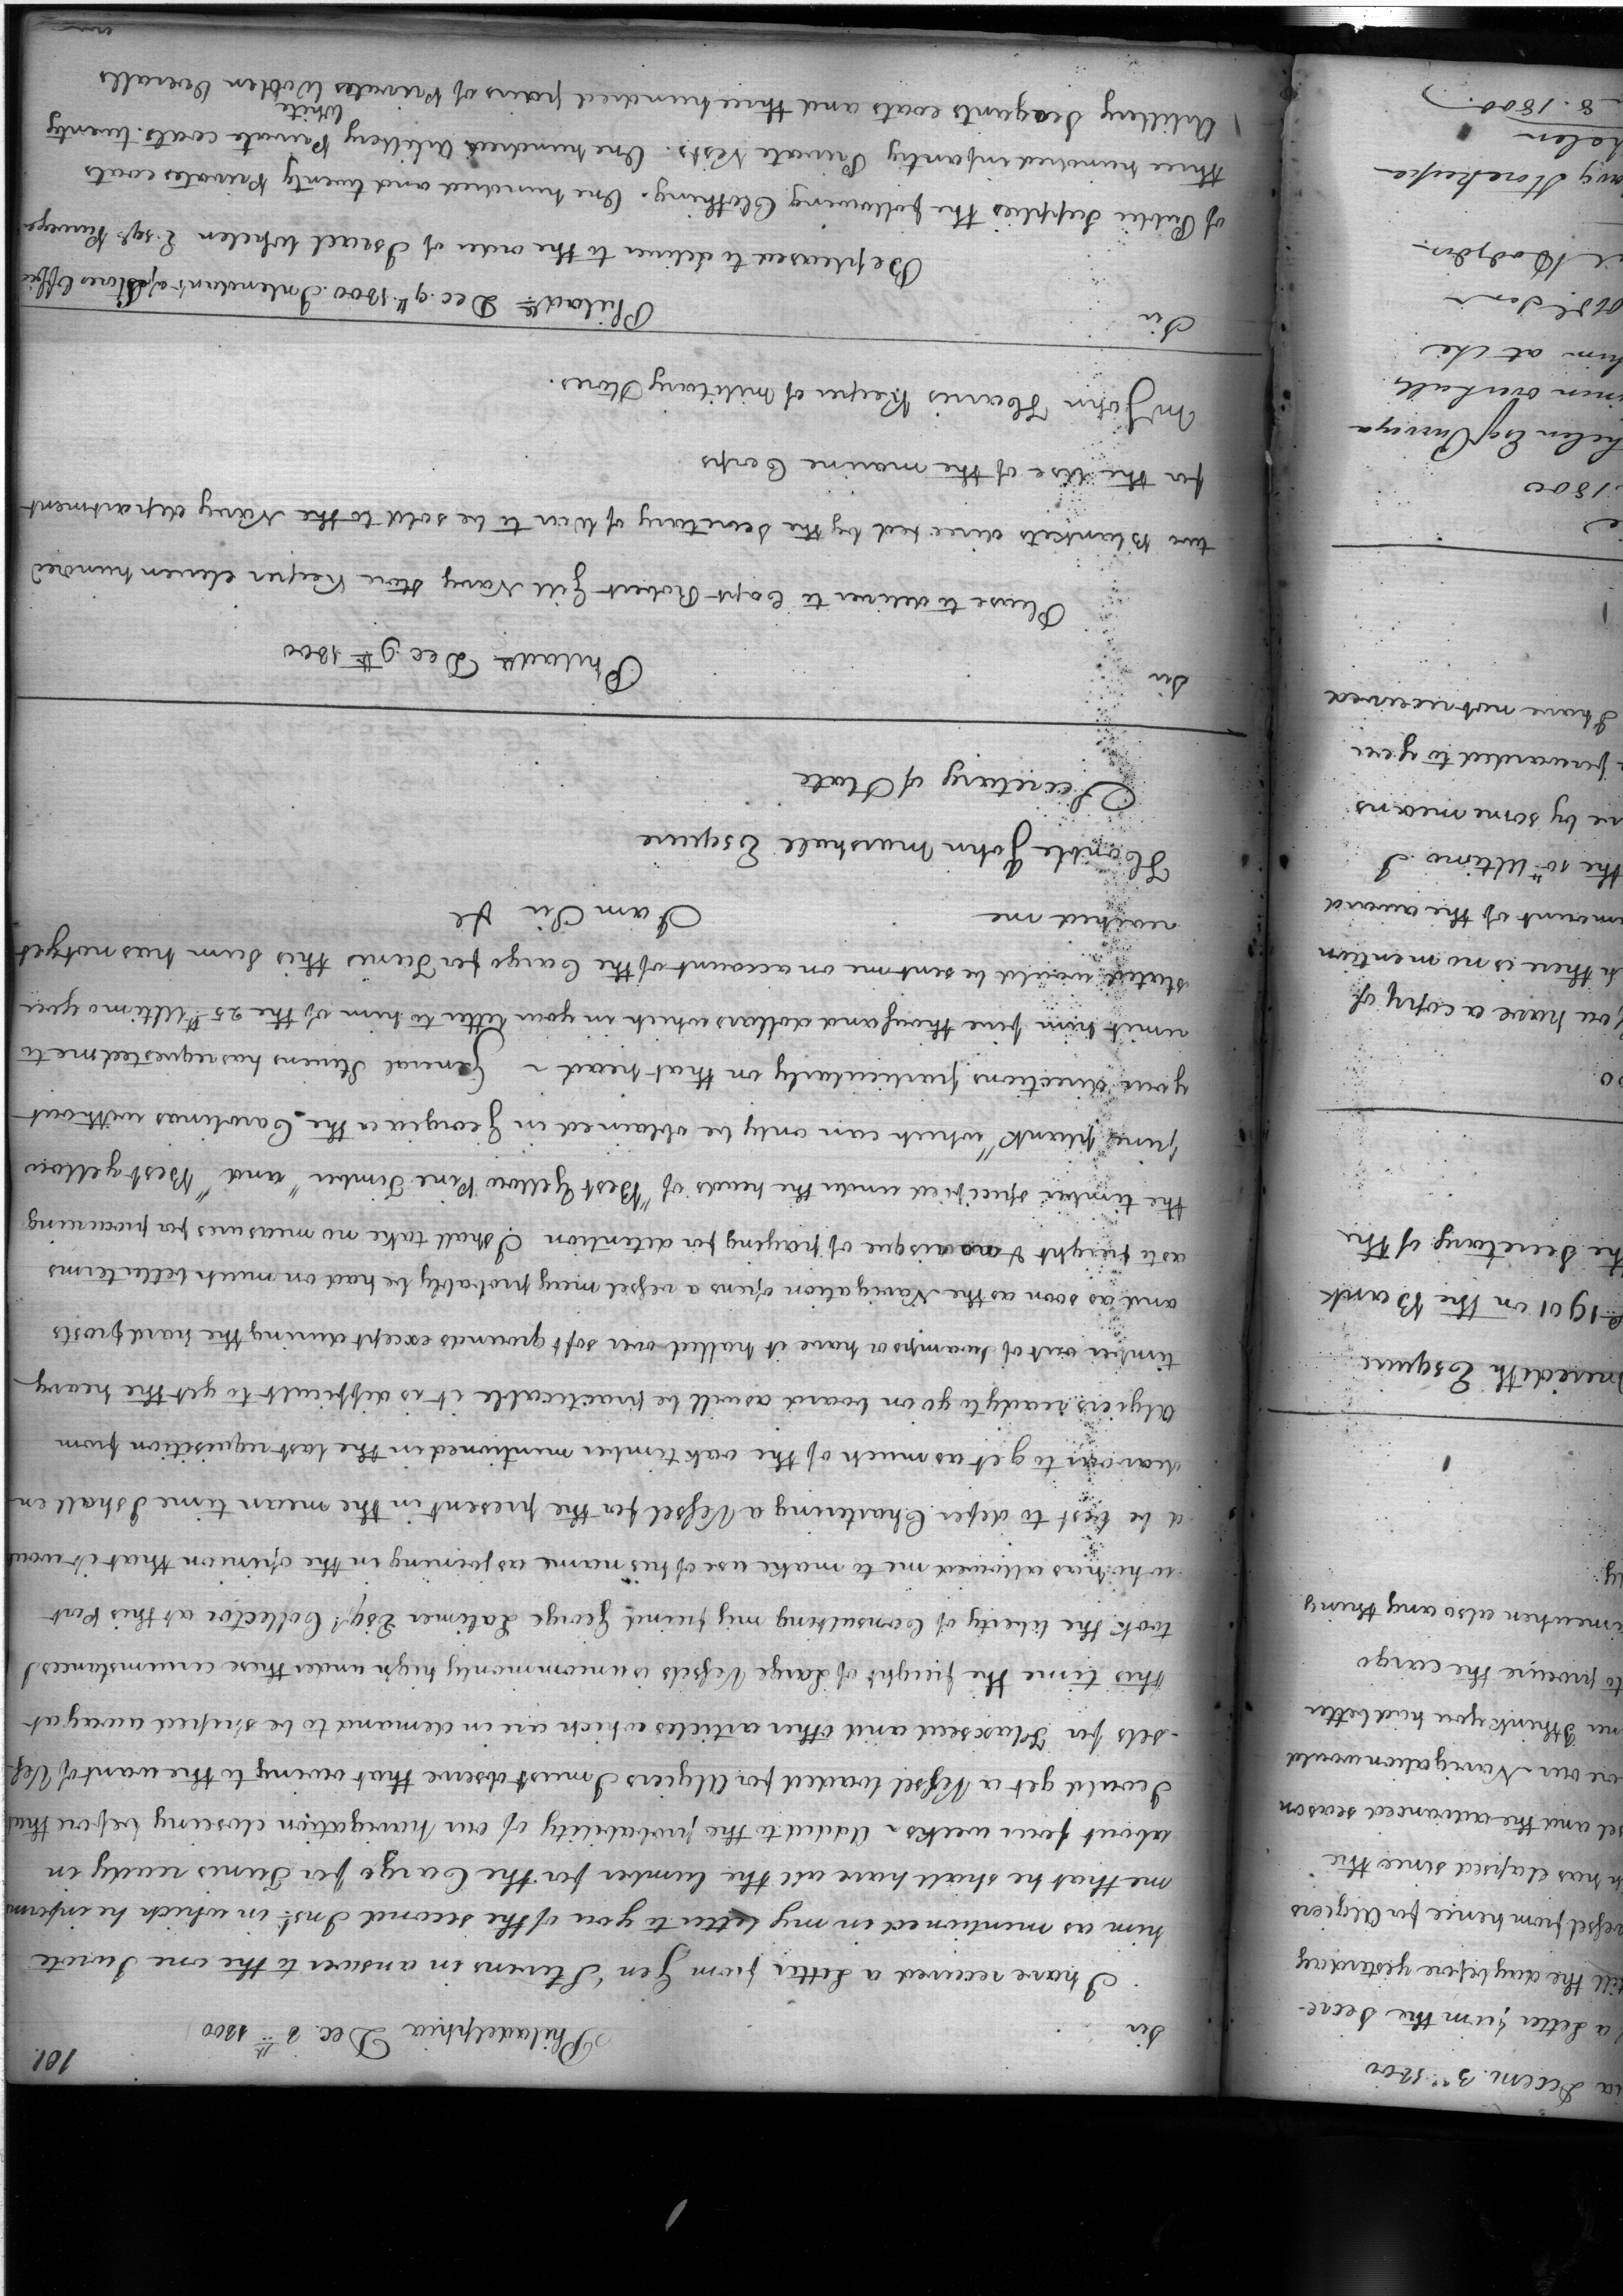 101.
Sir Philadelphia Dec. 8th 1800
I have received a Letter from Gen'l Stevens in answer to the one I wrote
him as mentioned in my letter to you of the second Inst. in which he informs
me that he shall have all the lumber for the Cargo for Tunis ready in
about four weeks. Added to the probability of our navigation closeing before that
I could get a Vessel loaded for Algiers I must observe that owing to the want of Ves-
-sels for Flaxseed and other articles which are in demand to be shiped away at
this time the freight of Large Vessels is uncommonly high under these circumstances I
took the liberty of Consulting my friend George Latimer Esqr. Collector at this Port
who has allowed me to make use of his name as joining in the opinion that it woul
d be best to defer Chartering a Vessel for the present in the mean time I shall en
deavour to get as much of the oak timber mentioned in the last requisition from
Algiers ready to go on board as will be practicable it is difficult to get the heavy
timber out of Swamps or have it halled over soft grounds except during the hard frosts
and as soon as the Navigation opens a vessel may probably be had on much better terms
as to freight & no risque of paying for detention I shall take no measures for procuring
the timber specified under the heads of "Best Yellow Pine Timber" and "Best yellow
pine plank" which can only be obtained in Georgia or the Carolinas without
your directions particularly on that head ~ General Stevens has requested me to
remit him five thousand dollars which in your letter to him of the 25th Ultimo you
stated would be sent me on account of the Cargo for Tunis this Sum has not yet
reached me I am Sir &c
Honble John Marshall Esquire
Secretary of State
Sir Philada Dec. 9th 1800
Please to deliver to Capt Robert Gill Navy Store Keeper eleven hundred
two Blankets directed by the Secretary of War to be sold to the Navy department
for the Use of the marine Corps
Mr John Harris Keeper of military Stores.
Sir Philada Dec. 9th. 1800. Intendant of Stores Office
Be pleased to deliver to the order of Israel Whelen Esqr. Purveyor
of Public Supplies the following Clothing. One hundred and twenty Privates coats
three hundred infantry Private Vests. One hundred Artillery Private coats. twenty
White
Artillery Seagants coats and three hundred pairs of Privates Woolen Overalls
ia Decem. 3d. 1800
a Letter from the Secre-
till the day before yesterday
vessel from hence for Algiers
h has elapsed since the
sel and the advanced season
ore our Navigation would
I think you had better
to procure the cargo
when also any thing
ly.
meredith Esquire
on the Bank
the Secretary of the
You have a copy of
h there is no mention
mount of the award
the 10th Ultimo I
re by some means
forwarded to you
I have not received
1800
helen Esq Purveyor
him at the
avy Storekeeper
8. 1800.